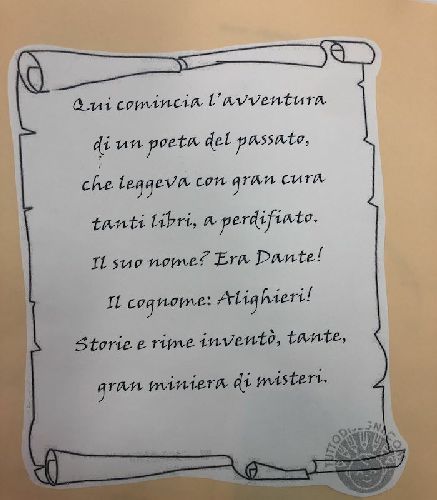 Qui comincia l'avventura
di un poeta del passato,
che leggeva con gran cura
tanti libri, a perdifiato.
Il suo nome? Era Dante!
Il cognome: Alighieri!
Storie e rime inventò, tante,
gran miniera di misteri.